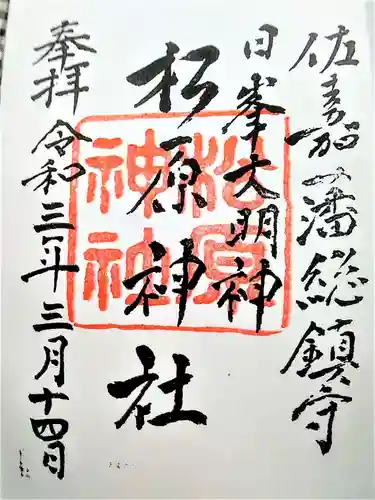 佐嘉藩総鎮守
日峯大明神
松原神社
松原神社
奉拝
令和三年三月十四日